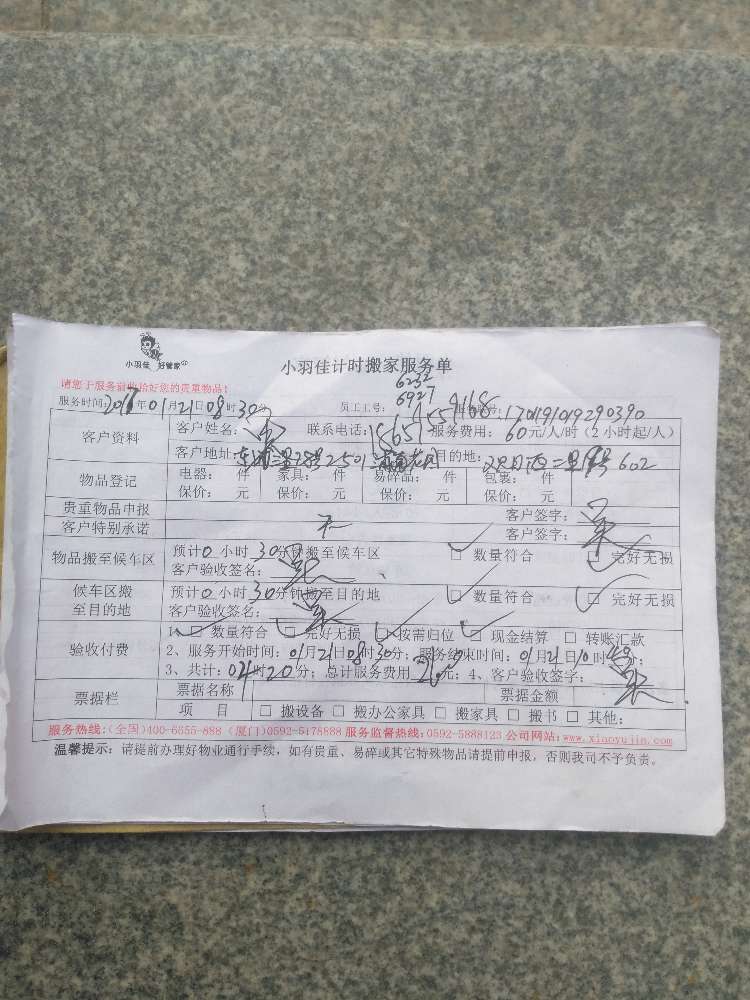 小羽佳 好管家
小羽佳计时搬家服务单
请您于服务前收拾好您的贵重物品!
6232
6927
服务时间:2017年01月21日08时30分 员工工号: 170191019290390
客户资料 客户姓名: 联系电话: 服务费用: 60元/人/时(2小时起/人)
客户地址: 目的地: 602
物品登记 电器: 件 家具: 件 易碎品: 件 包装: 件
保价: 元 保价: 元 保价: 元 保价: 元
贵重物品申报 客户签字:
客户特别承诺 无 客户签字:
物品搬至候车区 预计0小时30分钟搬至候车区 □ 数量符合 □ 完好无损
客户验收签名:
候车区搬至目的地 预计0小时30分钟搬至目的地 □ 数量符合 □ 完好无损
客户验收签名:
验收付费 1、□ 数量符合 □ 完好无损 □ 按需归位 □ 现金结算 □ 转账汇款
2、服务开始时间:01月21日08时30分; 服务结束时间:01月21日10时49分;
3、共计: 时20分; 总计服务费用 元; 4、客户验收签字:
票据栏 票据名称 票据金额
项 目 □ 搬设备 □ 搬办公家具 □ 搬家具 □ 搬书 □ 其他:
服务热线:(全国)400-6655-888 (厦门)0592-5178888 服务监督热线:0592-5888123 公司网站:www.xiaoyujia.com
温馨提示: 请提前办理好物业通行手续, 如有贵重、易碎或其它特殊物品请提前申报, 否则我司不予负责。